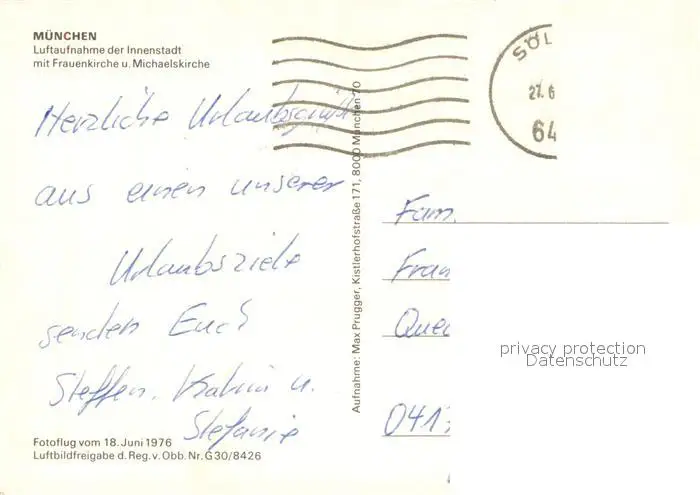 MÜNCHEN
Luftaufnahme der Innenstadt
mit Frauenkirche u. Michaelskirche
Herzliche Urlaubsgrüße
aus einen unserer
Urlaubsziele
senden Euch
Steffen, Katrin u.
Stefanie
Fotoflug vom 18. Juni 1976
Luftbildfreigabe d. Reg. v. Obb. Nr. G 30/8426
Aufnahme: Max Prugger, Kistlerhofstraße 171, 8000 München 70
SÖL
27. 6
64
Fam.
Fran
Quec
041
privacy protection
Datenschutz